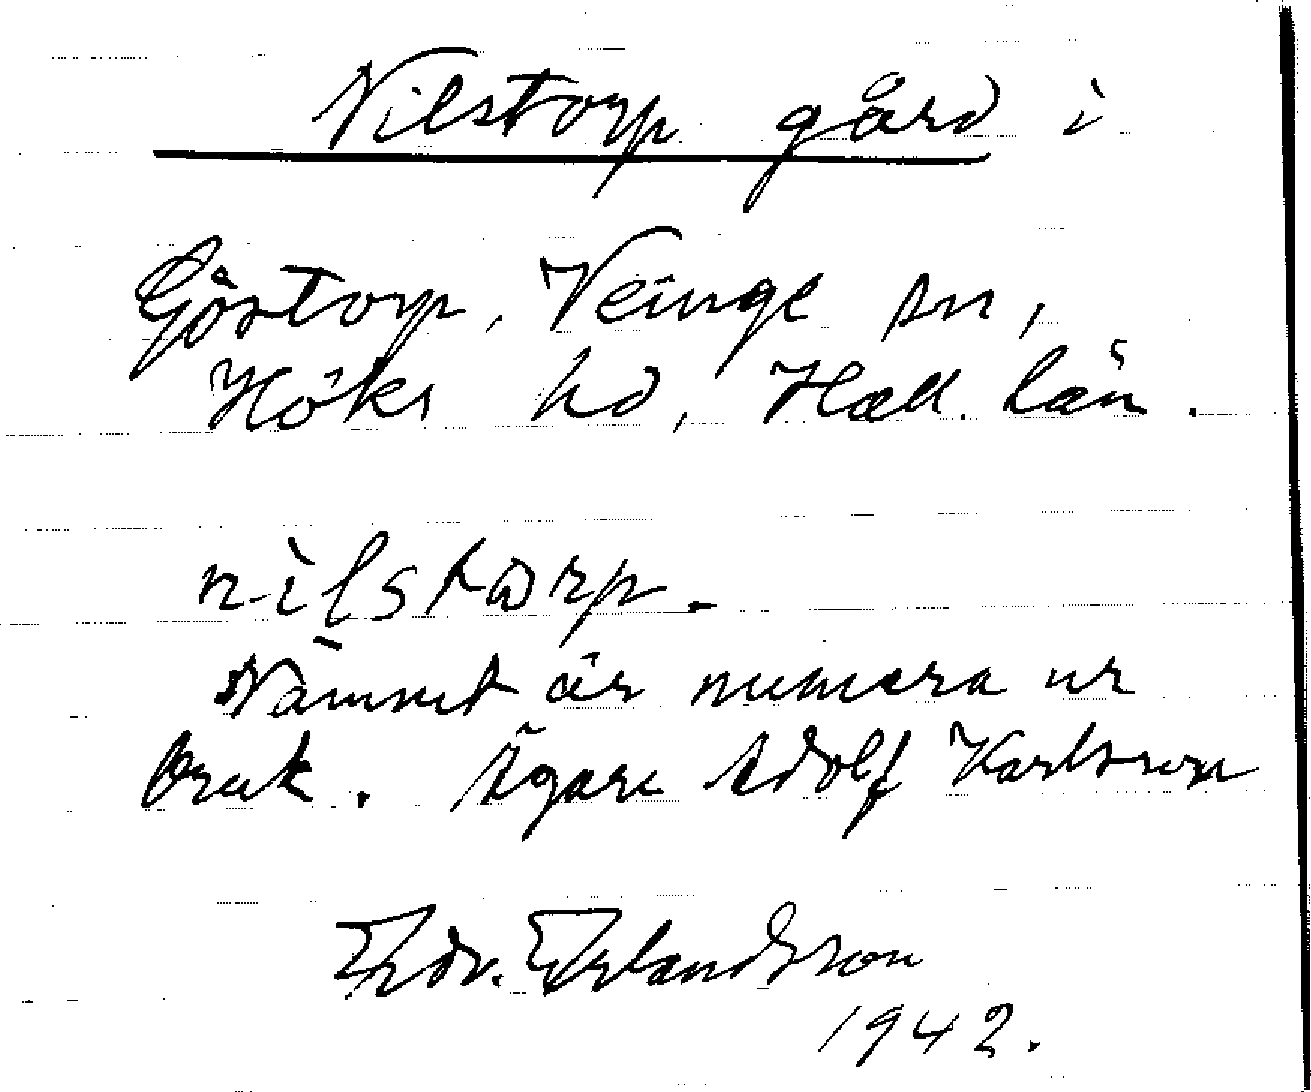 Nilstorp gård i
Göstorp, Veinge sn,
Höks hd, Hall. län.
nilstorp.
Namnet är numera ur
bruk. Ägare Adolf Karlsson
Edv. Erlandsson
1942.